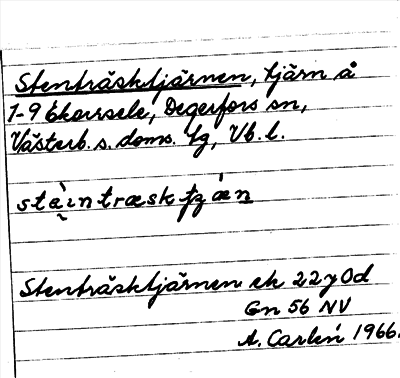 Stenträsktjärnen, tjärn å
1-9 Ekorrsele, Degerfors sn,
Västerb. s. doms. tg, Vb. l.
Stenträsktjärnen ek 22y0d
Gn 56 NV
A. Carlén 1966.